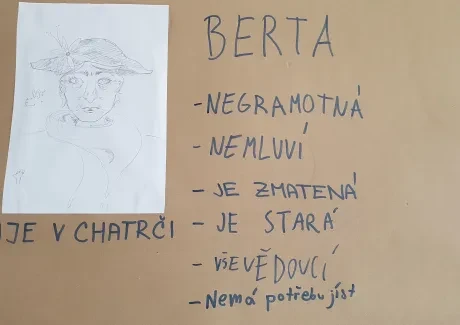 BERTA
- NEGRAMOTNÁ
- NEMLUVÍ
- JE ZMATENÁ
- JE STARÁ
- VŠEVĚDOUCÍ
- Nemá potřebu jíst
JE V CHATRČI